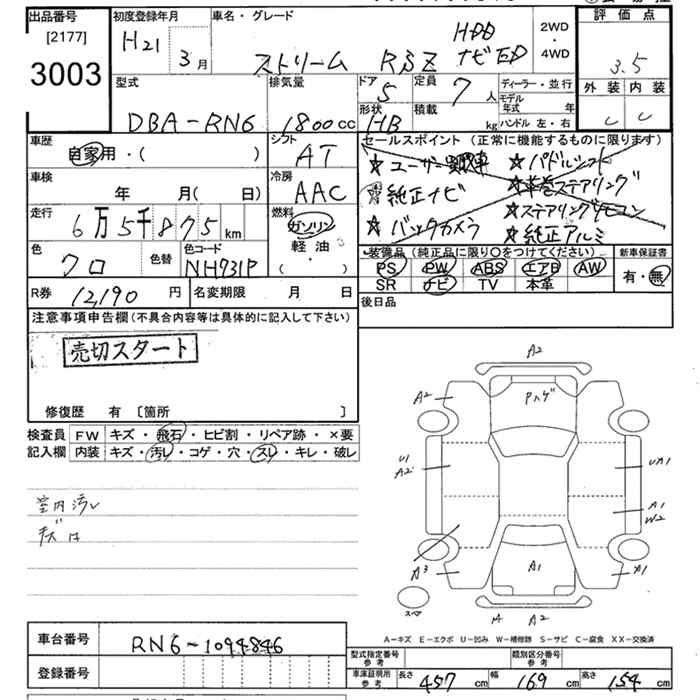 出品番号 初度登録年月 車名・グレード 評価点
[2177] H21年 3月 ストリーム RSZ HDD ナビED 2WD・4WD 3.5
3003
型式 排気量 ドア 定員 ディーラー・並行 外装 内装
DBA-RN6 1800cc 5 7人 モデル年式 年 C C
形状 積載 ハンドル 左・右
HB kg
車歴 シフト セールスポイント(正常に機能するものに限ります)
自家用・( ) AT ★ユーザー買取車 ★パドルシフト
車検 冷房 純正ナビ ★本革巻ステアリング
年 月(日) AAC ★バックカメラ ★ステアリングリモコン
走行 燃料 ★純正アルミ
6万5千875km ガソリン
軽油
( ・ )
色 色替 色コード 装備品(純正品に限り○をつけてください) 新車保証書
クロ NH731P PS PW ABS エアB AW 有・無
SR ナビ TV 本革
R券 12,190円 名変期限 月 日 後日品
注意事項申告欄(不具合内容等は具体的に記入して下さい)
売切スタート
修復歴 有 [箇所 ]
検査員 FW キズ・飛石・ヒビ割・リペア跡・×要
記入欄 内装 キズ・汚レ・コゲ・穴・スレ・キレ・破レ
室内汚レ
A2
A2 Pハゲ
U1
A2
UA1
A1
W2
A3 A1 A1
スペア A2
A-キズ E-エクボ U-凹み W-補修跡 S-サビ C-腐食 XX-交換済
車台番号 RN6-1094846
登録番号
型式指定番号 参考 類別区分番号 参考
車庫証明用 参考 長さ 457cm 幅 169cm 高さ 154cm